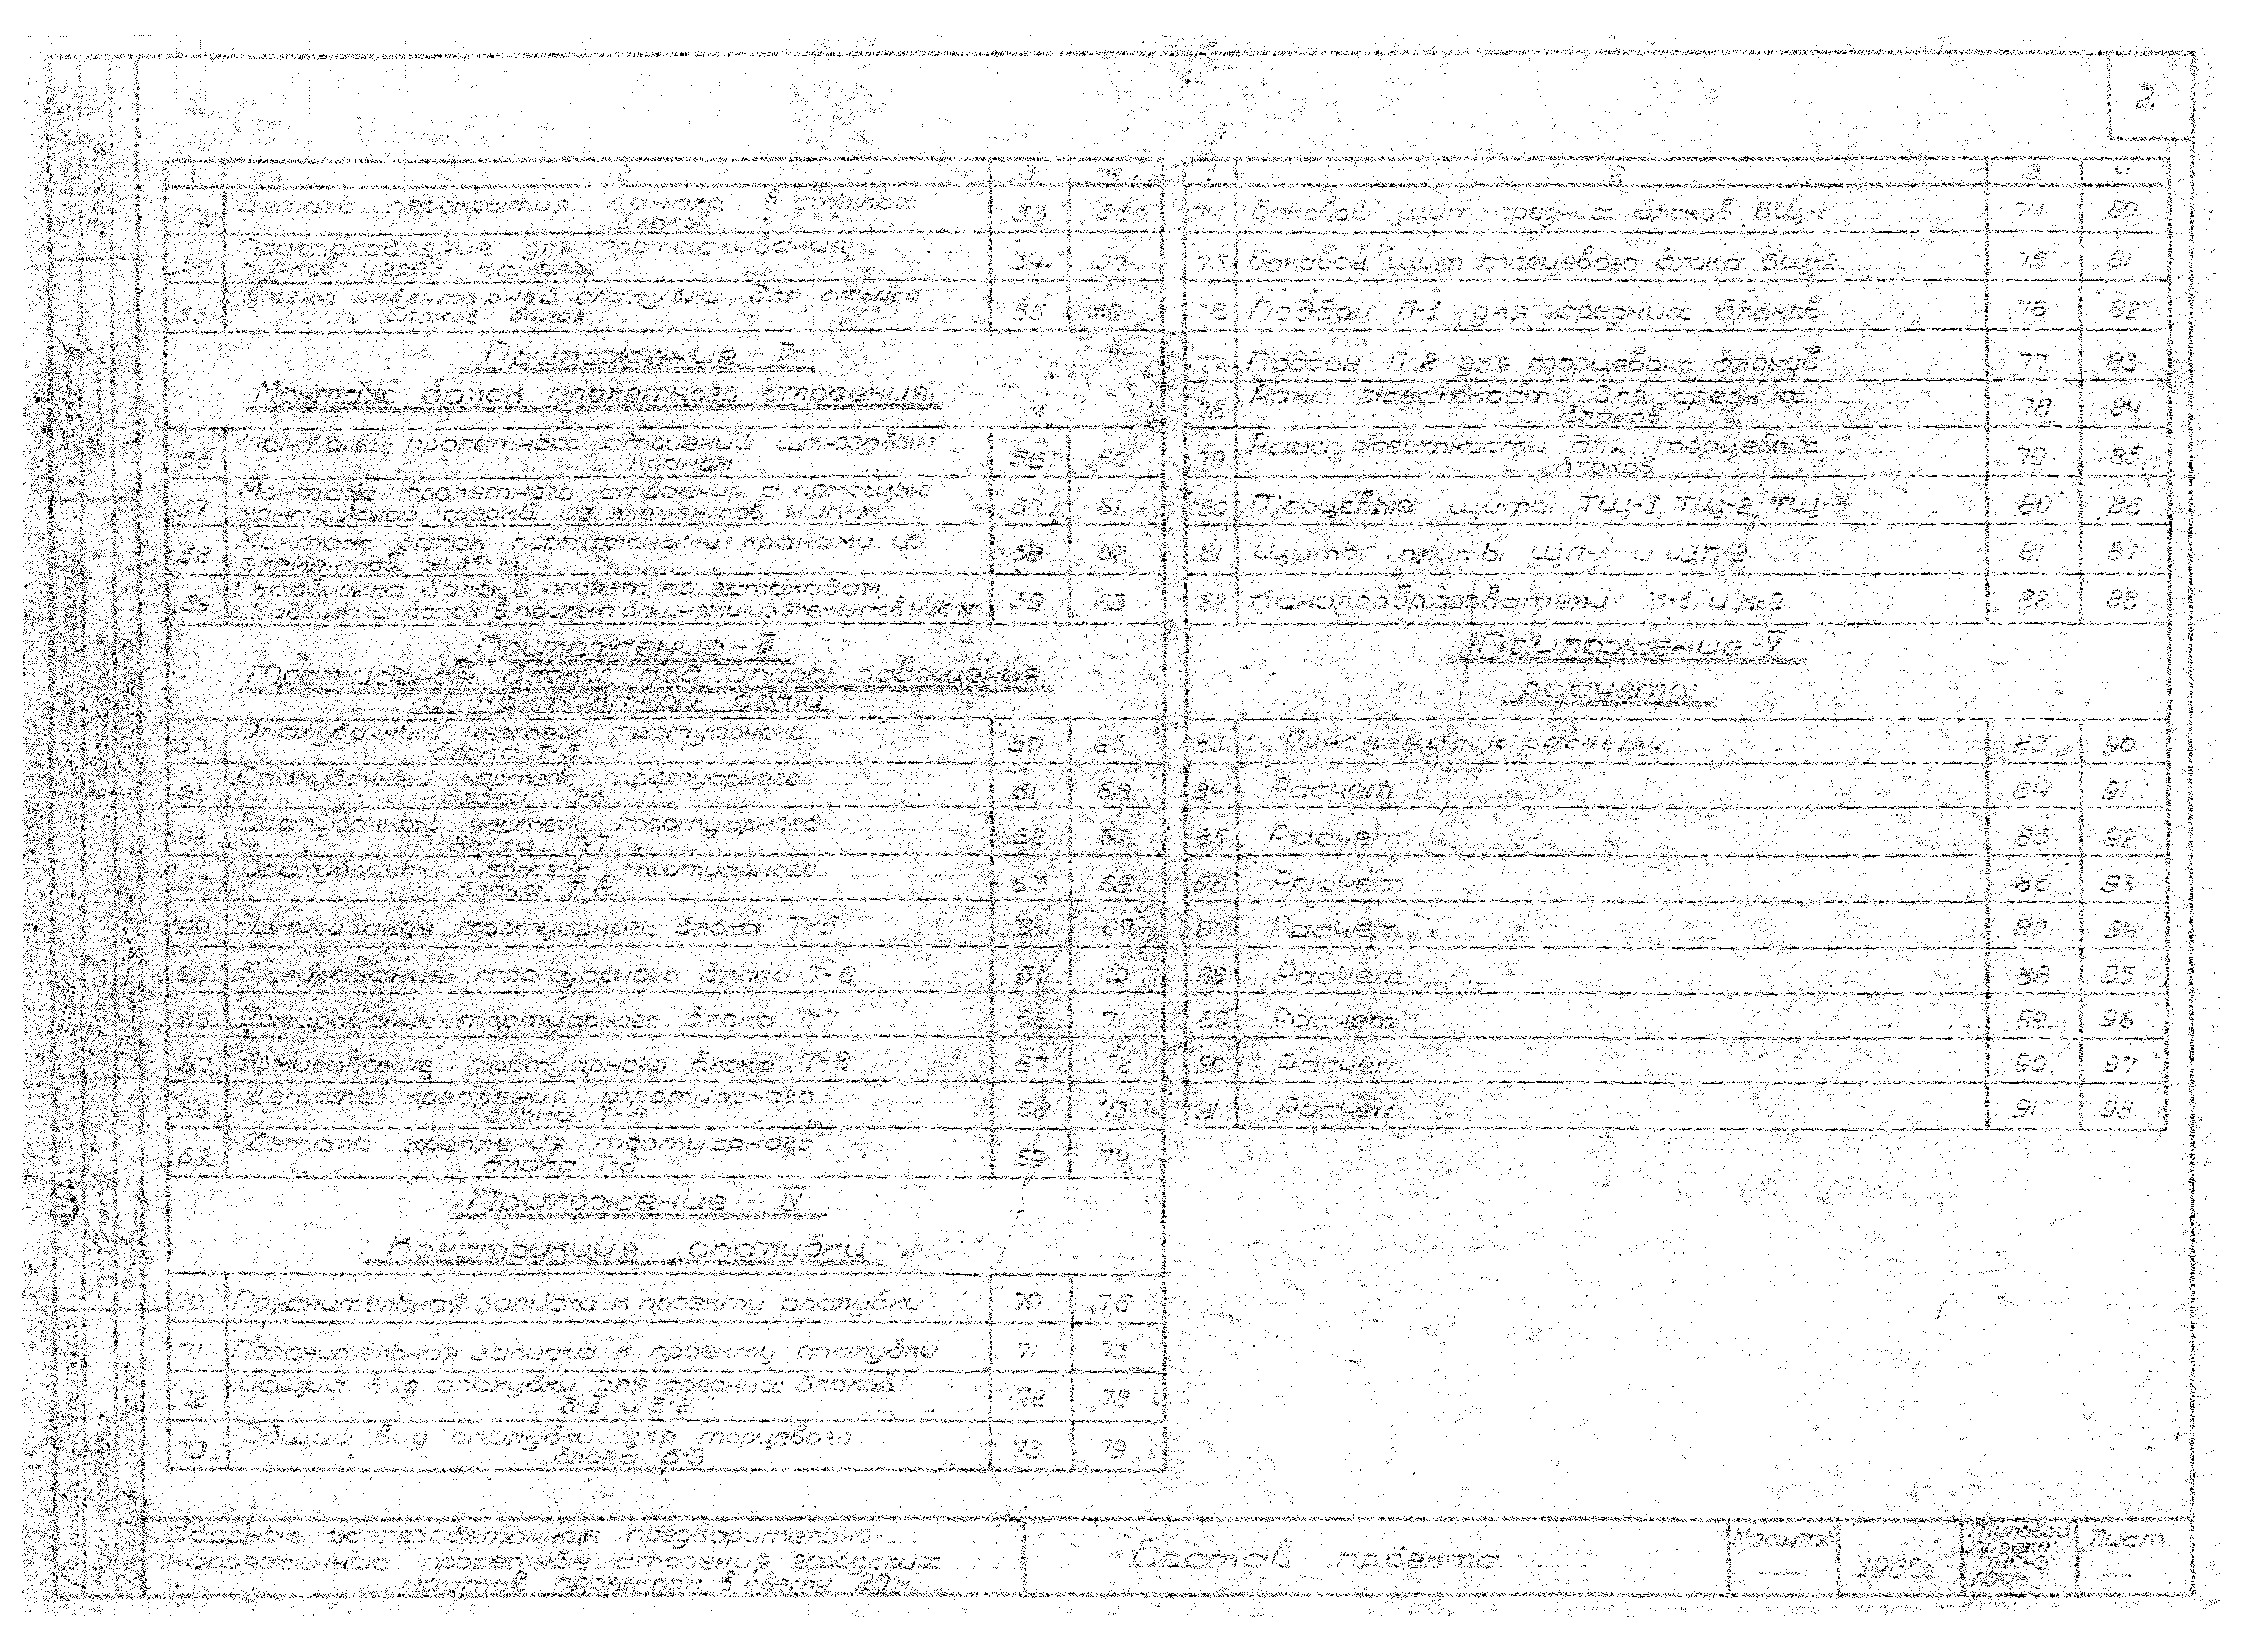 2
1 2 3 4
53 Деталь перекрытия канала в стыках 53 56
блоков
54 Приспособление для протаскивания 54 57
пучков через каналы
55 Схема инвентарной опалубки для стыка 55 58
блоков балок.
Приложение - II
Монтаж балок пролетного строения.
56 Монтаж пролетных строений шлюзовым 56 60
краном
57 Монтаж пролетного строения с помощью 57 61
монтажной фермы из элементов УИК-М.
58 Монтаж балок портальными кранами из 58 62
элементов УИК-М.
59 1. Надвижка балок в пролет по эстакадам 59 63
2. Надвижка балок в пролет башнями из элементов УИК-М
Приложение - III
Тротуарные блоки под опоры освещения
и контактной сети
60 Опалубочный чертеж тротуарного 60 65
блока Т-5
61 Опалубочный чертеж тротуарного 61 66
блока Т-6
62 Опалубочный чертеж тротуарного 62 67
блока Т-7
63 Опалубочный чертеж тротуарного 63 68
блока Т-8
64 Армирование тротуарного блока Т-5 64 69
65 Армирование тротуарного блока Т-6 65 70
66 Армирование тротуарного блока Т-7 66 71
67 Армирование тротуарного блока Т-8 67 72
68 Деталь крепления тротуарного 68 73
блока Т-6
69 Деталь крепления тротуарного 69 74
блока Т-8
Приложение - IV
Конструкция опалубки
70 Пояснительная записка к проекту опалубки 70 76
71 Пояснительная записка к проекту опалубки 71 77
72 Общий вид опалубки для средних блоков 72 78
Б-1 и Б-2
73 Общий вид опалубки для торцевого 73 79
блока Б-3
1 2 3 4
74 Боковой щит средних блоков БЩ-1 74 80
75 Боковой щит торцевого блока БЩ-2 75 81
76 Поддон П-1 для средних блоков 76 82
77 Поддон П-2 для торцевых блоков 77 83
78 Рама жесткости для средних 78 84
блоков
79 Рама жесткости для торцевых 79 85
блоков
80 Торцевые щиты ТЩ-1, ТЩ-2, ТЩ-3 80 86
81 Щиты плиты ЩП-1 и ЩП-2 81 87
82 Каналообразователи К-1 и К-2 82 88
Приложение - V
расчеты
83 Пояснения к расчету. 83 90
84 Расчет 84 91
85 Расчет 85 92
86 Расчет 86 93
87 Расчет 87 94
88 Расчет 88 95
89 Расчет 89 96
90 Расчет 90 97
91 Расчет 91 98
Гл. инж. института
Нач. отдела
Гл. инж. отдела
Гл. инж. проекта
Исполнил
Проверил
Кузнецов
Волков
Сборные железобетонные предварительно-
напряженные пролетные строения городских
мостов пролетом в свету 20м.
Состав проекта
Масштаб
—
1960г
Типовой
проект
Лист
—
том I